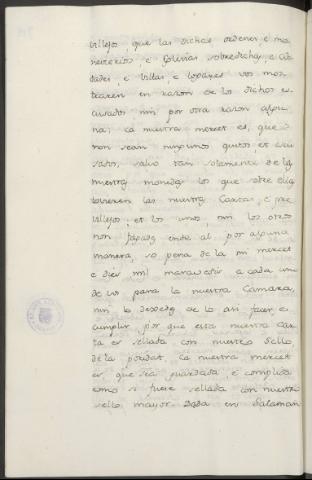 villejos, que las dichas ordenes, e mo
nesterios, e Iglesias sobredichas, e cib
dades, e villas, e logares vos mos
traren en razon de los dichos es
cusados nin por otra razon algu
na; ca nuestra mercet es, que
non sean ningunos quitos, et escu
sados, salvo tan solamente de las
nuestras monedas los que sobre ello
tovieren las nuestras Cartas, e pre
villejos; et los unos, nin los otros
non fagades ende al por alguna
manera, so pena de la mi mercet
e diez mil maravedis a cada uno
de vos para la nuestra Camara,
nin lo dexedes de lo asi facer e
cumplir por que esta nuestra Car
ta es sellada con nuestro Sello
de la poridat, ca nuestra mercet
es, que sea guardada, e complida
como si fuese sellada con nuestro
sello mayor Dada en Salaman